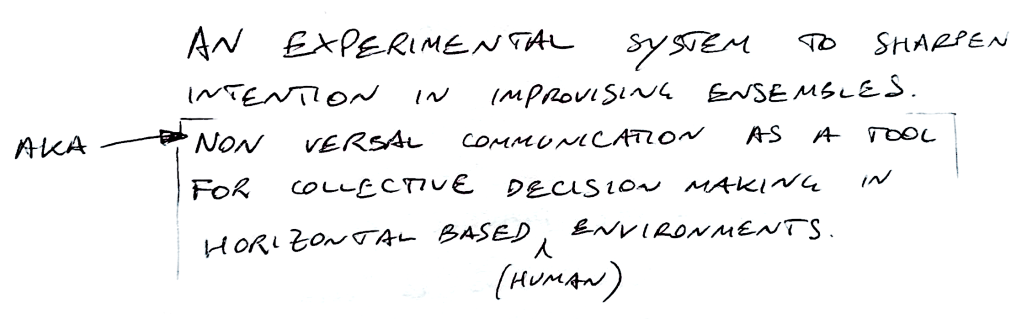 AN EXPERIMENTAL SYSTEM TO SHARPEN
INTENTION IN IMPROVISING ENSEMBLES.
AKA → NON VERBAL COMMUNICATION AS A TOOL
FOR COLLECTIVE DECISION MAKING IN
HORIZONTAL BASED ENVIRONMENTS.
(HUMAN)